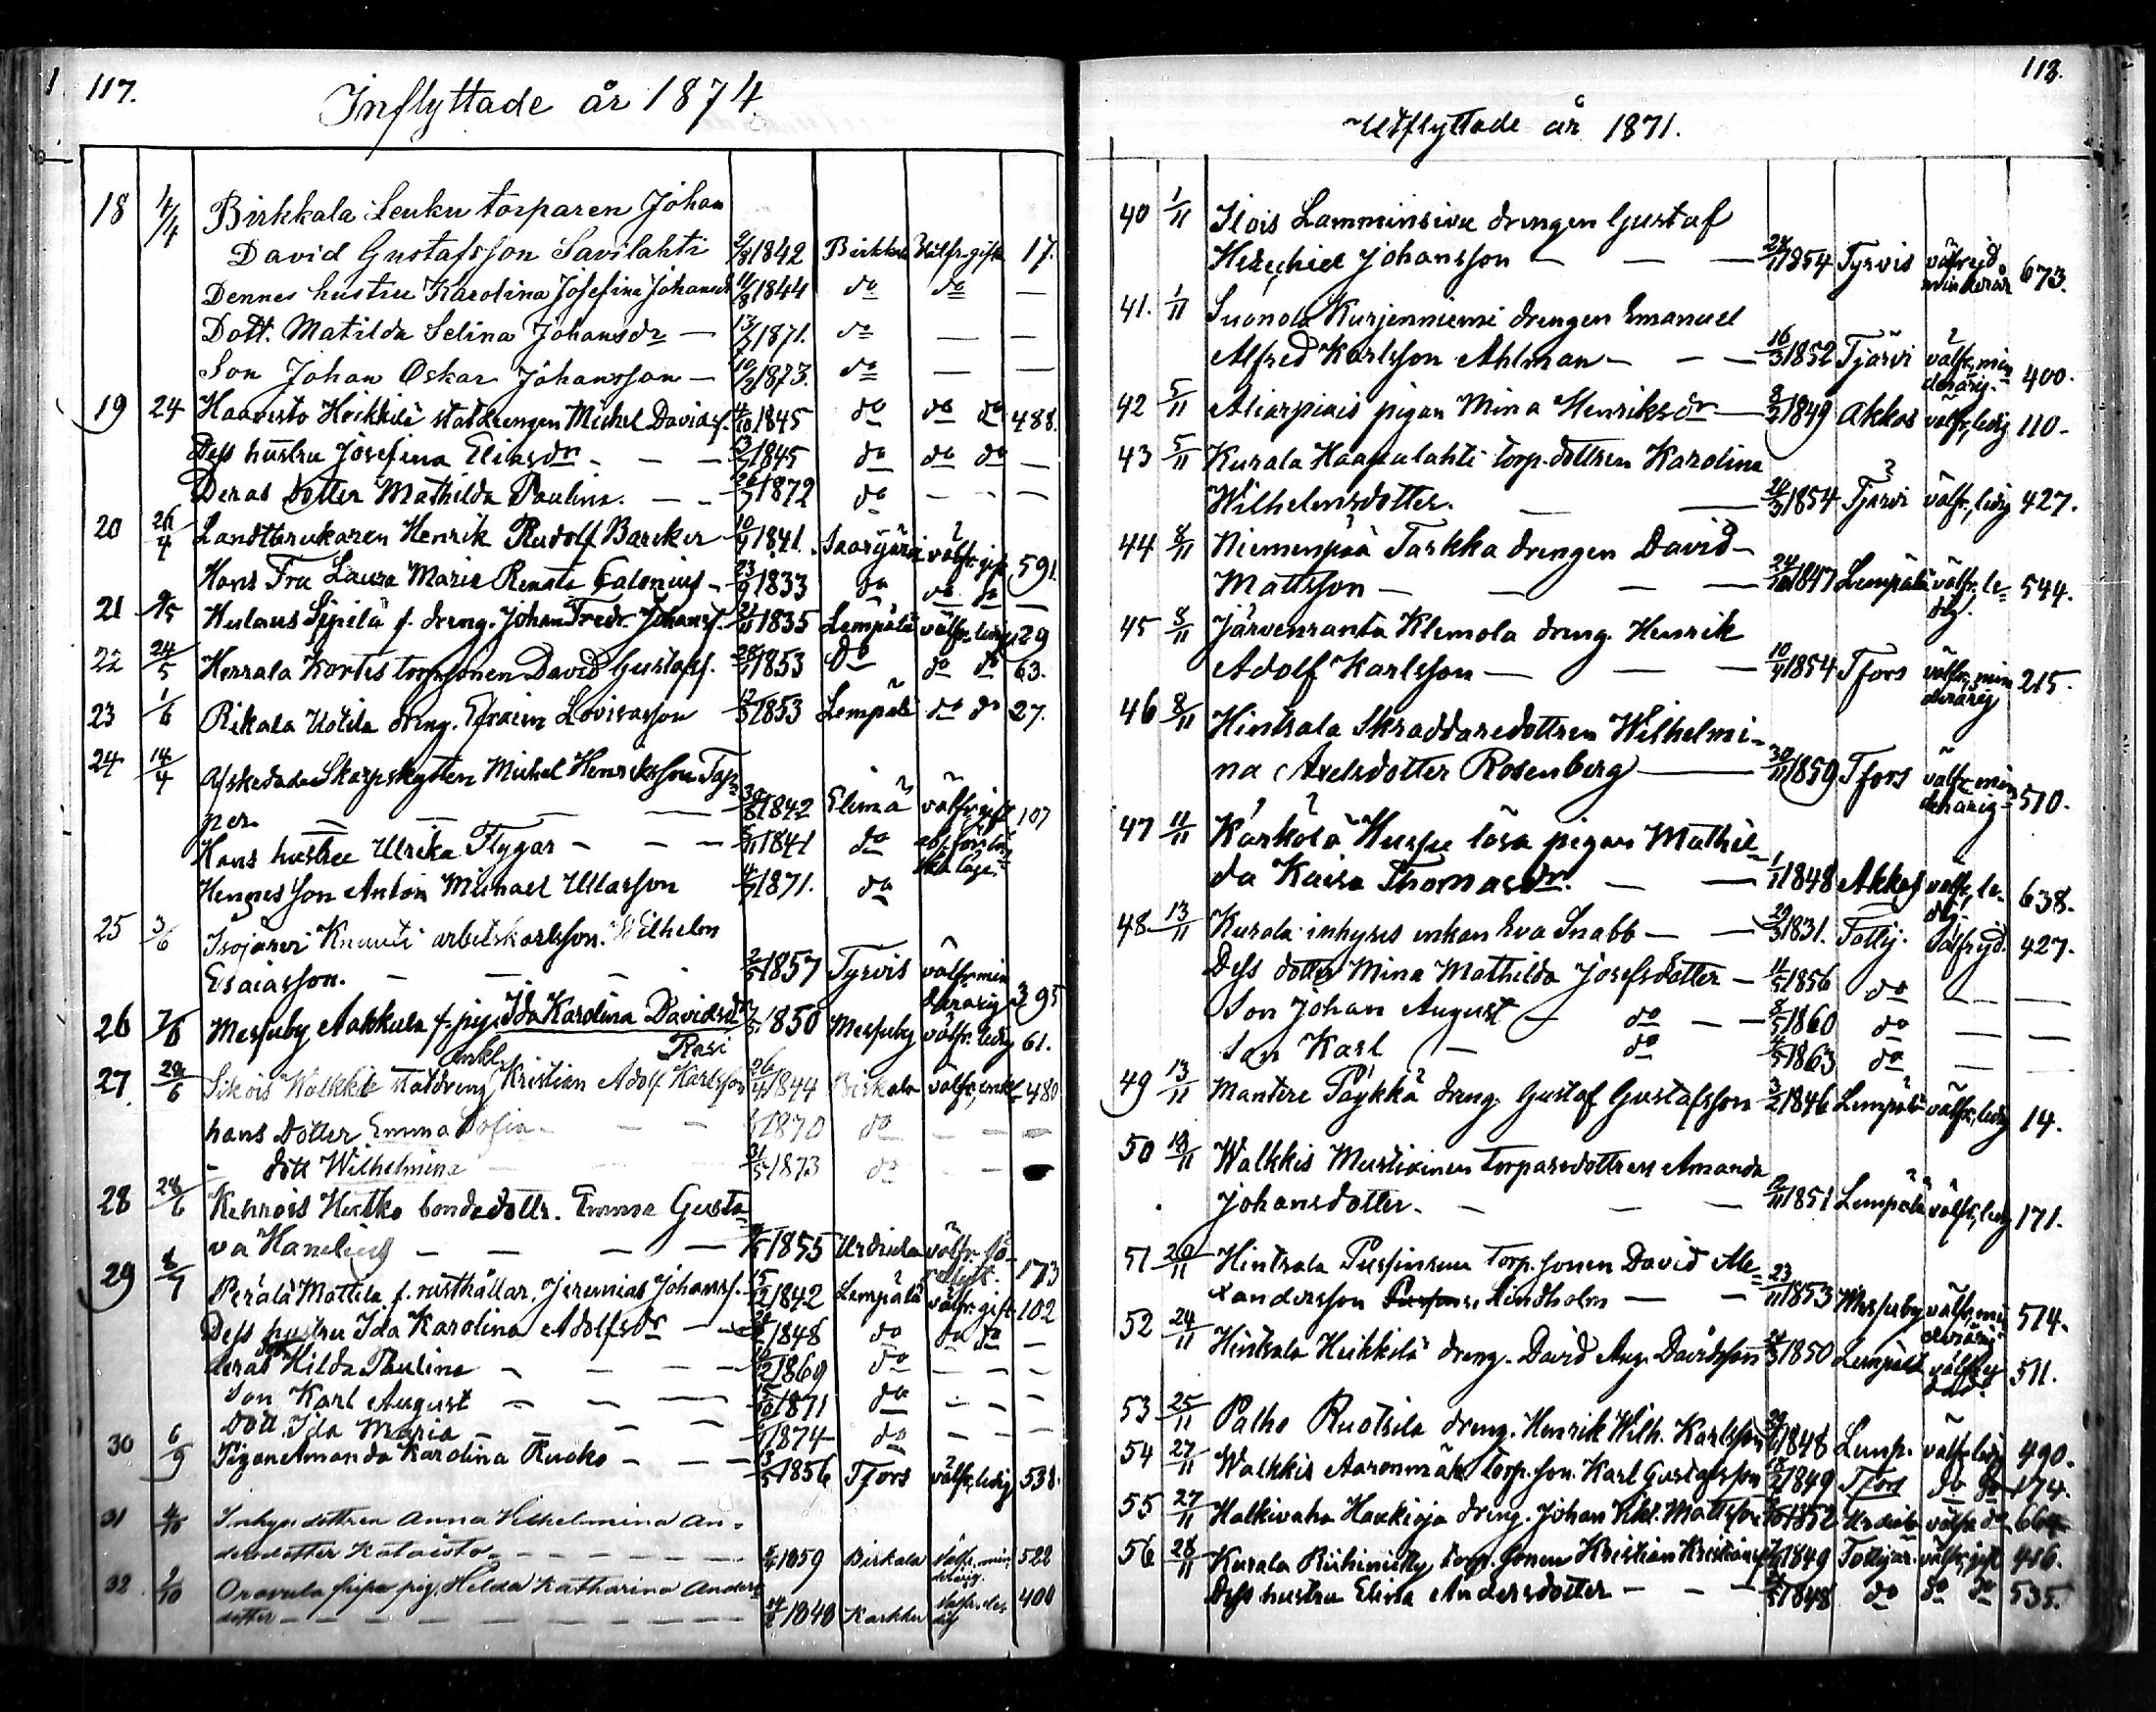 117.
Inflyttade år 1874.
18 4/4 Birkkala Leuku torparen Johan
David Gustafsson Savilahti 1842 Birkkala välfr. gift 17.
Dennes hustru Karolina Josefina Johansdr 1844 do do —
Dott. Matilda Selina Johansdr — 13/7 1871. do — —
Son Johan Oskar Johansson — 1873. do — —
19 24 Haavisto Heikkilä statdrengen Michel Davidss. 4/10 1845 do do do 488.
Dess hustru Josefina Eliasdr - — — 1845 do do do —
Deras dotter Mathilda Paulina. — - 1872 do - - - —
20 26/4 Landtbrukaren Henrik Rudolf Barcker 1841. Saarijärvi välfr. gift 591.
Hans Fru Laura Maria Renata Calonius - 23/9 1833 do do do —
21 9/5 Hulaus Sipilä f. dreng. Johan Fredr. Johanss. 1835 Lempälä välfr. ledig 29
22 24/5 Herrala Kortes torp.sonen David Gustafss. 1853 do do do 63.
23 1/6 Rikala Uotila dreng. Efraim Lovisasson 1853 Lempälä do do 27.
24 14/4 Afskedade Skarpskytten Michel Henriksson Tap-
per — — — — 1842 Elimä välfr. gift 107
Hans hustru Ulrika Flygar - — — 1841 do
Hennes son Anton Mikael Ullasson 1871. do
25 3/6 Isojärvi Knuuti arbetskarlsson. Wilhelm
Esaiasson. — — - 1857 Tyrvis välfr. min
derårig 395
26 7/6 Messuby Aakkula f. pig. Ida Karolina Davidsdr 1850 Messuby välfr. ledig 61.
Rasi
27. 28/6 Sikois Walkki statdreng enkl. Kristian Adolf Karlsson 26/4 1844 Birkala välfr. enkl. 480
hans dotter Emma Sofia - — — 1870 do - - —
- dott Wilhelmina 31/5 1873 do - -
28 28/6 Kehrois Heikko bondedottr. Emma Gusta-
va Hanelius — — — — 1855 Urdiala välfr. 173
29 Perälä Mattila f. rusthållar. Jeremias Johanss. 15/12 1842 Lempälä välfr. gift 102
Dess hustru Ida Karolina Adolfsdr — - 1848 do do do —
deras dott Hilda Paulina - — — 1869 do - - -
Son Karl August - - — 1871 do - - -
Dott. Ida Maria - - - 1874 do - - -
30 6/9 Pigan Amanda Karolina Rudko - — — 1856 Tfors välfr. ledig 538.
31 4/10 Inhys dottren Anna Vilhelmina An-
dersdotter Kataisto - — — — 1859 Birkala Välfr. min
derårig. 522
32 Oravula piga pig. Hilda Katharina Anders
dotter — — — — — 14/2 1848 Karkku Välfr. le-
dig 400
118.
Utflyttade år 1871.
40 1/11 Ilois Lamminsivu drengen Gustaf
Hesechiel Johansson — — — 1854 Tyrvis välfrejd.
minderår 673.
41. 1/11 Suonola Kurjenniemi drengen Emanuel
Alfred Karlsson Ahlman — - — 16/3 1852 Tjärvi välfr. min
derårig. 400.
42 5/11 Aliarpiais pigan Mina Henriksdr — 1849 Akkas välfr., ledig 110.
43 5/11 Kurala Haapalahti torp. dottren Karolina
Wilhelmsdotter. — — 1854 Tjärvi välfr., ledig 427.
44 8/11 Niemenpää Tarkka drengen David
Mattsson — — — 24/10 1847 Lempälä välfr., le-
dig. 544.
45 8/11 Järvenranta Klemola dreng. Henrik
Adolf Karlsson — — — 1854 Tfors välfr., min
derårig 215.
46 8/11 Hintsala Skräddaredottren Wilhelmi-
na Axelsdotter Rosenberg — 30/11 1859 Tfors välfr. min
derårig 510.
47 11/11 Kärkölä Hussu lösa pigan Mathil-
da Kaisa Thomasdr. — — 1848 Akkas välfr., le-
dig. 638.
48. 13/11 Kurala inhyses enkan Eva Snabb — — 29/3 1831. Tottij. Välfrejd. 427.
Dess dotter Mina Mathilda Josefsdotter — 11/5 1856 do — —
Son Johan August — do — — 1860 do — —
Son Karl — do 1863 do — —
49 13/11 Mantere Pöykkä dreng. Gustaf Gustafsson 3/2 1846 Lempälä välfr., ledig 14.
50 Walkkis Mustivinen torparedottren Amanda
Johansdotter. - — — 12/11 1851 Lempälä välfr., ledig 171.
51 20/11 Hintsala Pessinsuu torp. sonen David Ale-
xandersson Lindholm — — 23/11 1853 Messuby välfr., min
derårig 514.
52 24/11 Hintsala Heikkilä dreng. David Aug. Davidsson 1850 Lempälä 511.
53 25/11 Palho Ruotsila dreng. Henrik Wilh. Karlsson 1848 Lemp. välfr. ledig 490.
54 27/11 Walkkis Aaronmäki torp. son. Karl Gustafsson 1849 Tfors do do 174.
55 27/11 Halkivaha Haukioja dreng. Johan Vikt. Mattsson 1852 Urdiala välfr. do
56 28/11 Kurala Riihiniitty torp. sonen Kristian Kristianss. 1849 Tottijär. välfr., gift 416.
Dess hustru Elina Andersdotter — - — 1848 do do do 535.